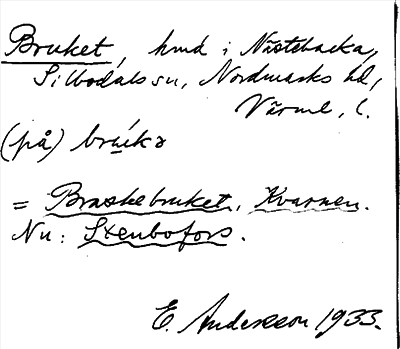 Bruket, hmd i Nästebacka,
Silbodals sn, Nordmarks hd,
Värml. l.
(på) brúka
= Braskebruket, Kvarnen.
Nu: Stenbofors.
E. Andersson 1933.